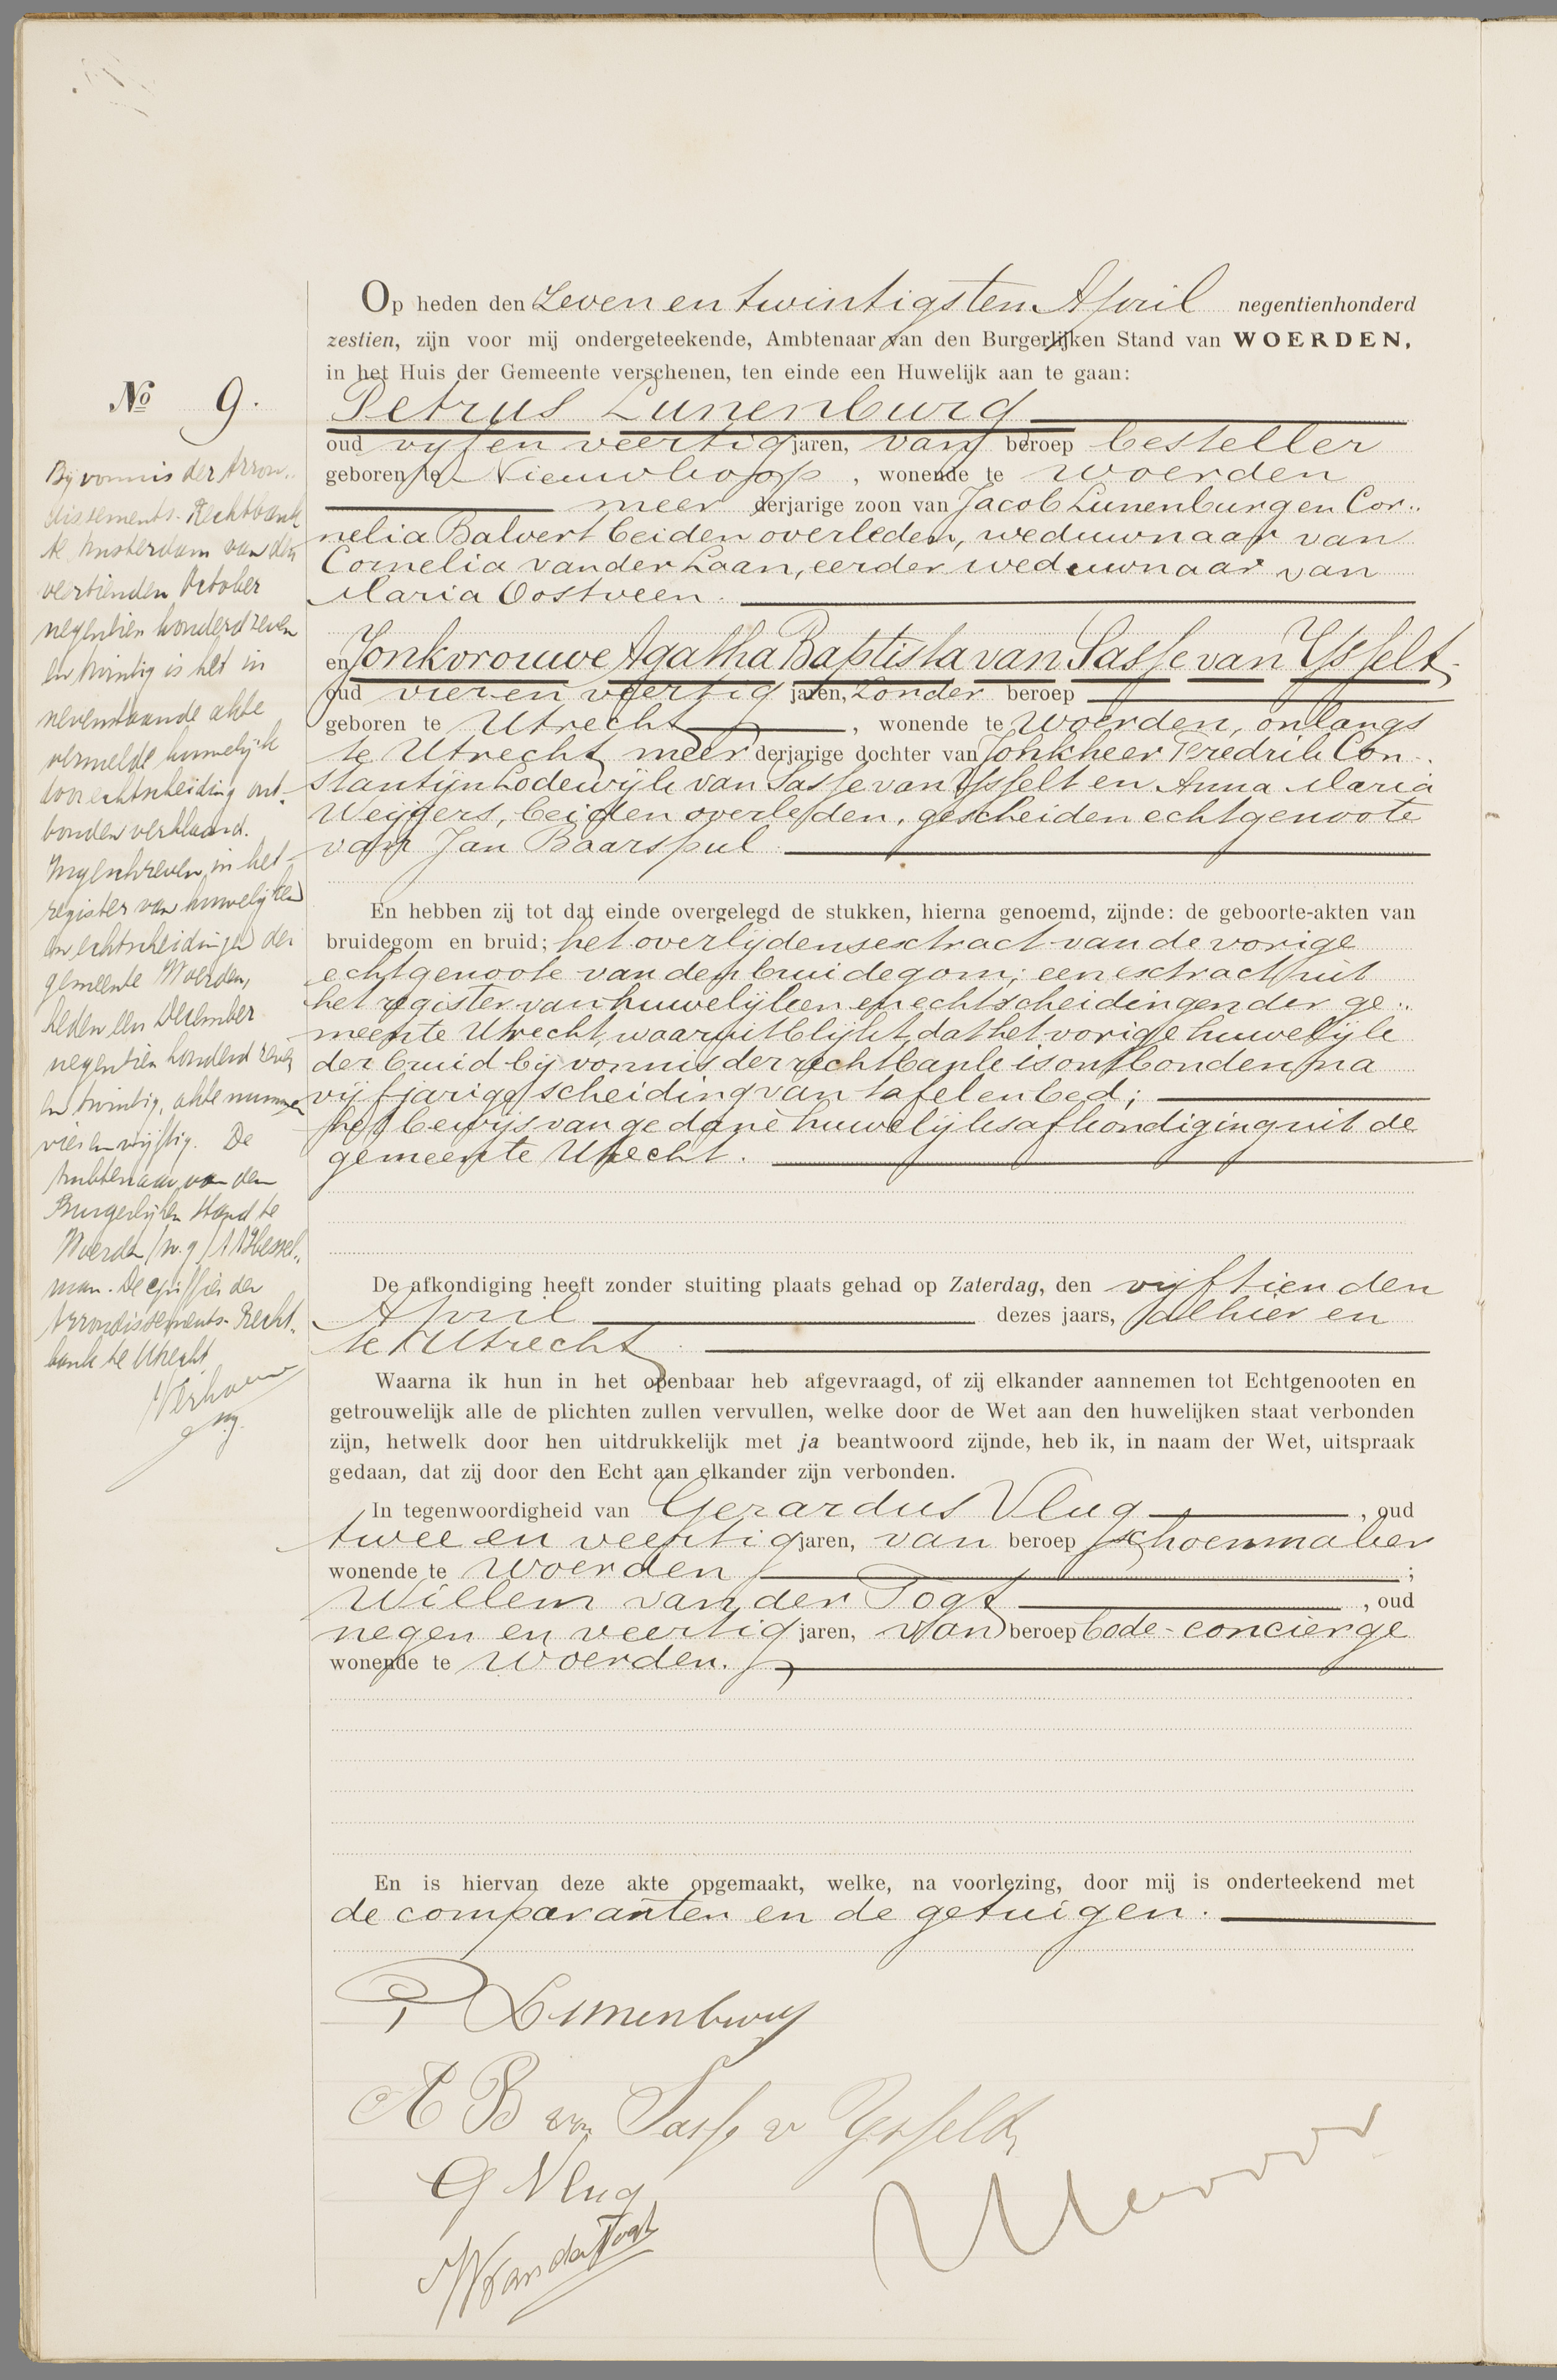 Op heden den zeven en twintigsten April negentienhonderd
zestien, zijn voor mij ondergeteekende, Ambtenaar van den Burgerlijken Stand van WOERDEN,
in het Huis der Gemeente verschenen, ten einde een Huwelijk aan te gaan:
Petrus Lunenburg
oud vijf en veertig jaren, van beroep besteller
geboren te Nieuwkoop, wonende te Woerden
meerderjarige zoon van Jacob Lunenburg en Cor..
nelia Balvert beiden overleden, weduwnaar van
Cornelia van der Laan, eerder weduwnaar van
Maria Oostveen.
en Jonkvrouwe Agatha Baptista van Sasse van Ysselt
oud vier en veertig jaren, zonder beroep
geboren te Utrecht, wonende te Woerden, onlangs
te Utrecht meerderjarige dochter van Jonkheer Fredrik Con..
stantijn Lodewijk van Sasse van Ysselt en Anna Maria
Weijgers, beiden overleden, gescheiden echtgenoote
van Jan Baarspul.
En hebben zij tot dat einde overgelegd de stukken, hierna genoemd, zijnde: de geboorte-akten van
bruidegom en bruid; het overlijdensextract van de vorige
echtgenoote van den bruidegom; een extract uit
het register van huwelijken en echtscheidingen der ge..
meente Utrecht, waaruit blijkt, dat het vorige huwelijk
der bruid bij vonnis der rechtbank is ontbonden na
vijfjarige scheiding van tafel en bed;
het bewijs van gedane huwelijksafkondiging uit de
gemeente Utrecht.
De afkondiging heeft zonder stuiting plaats gehad op Zaterdag, den vijftienden
April dezes jaars, alhier en
te Utrecht.
Waarna ik hun in het openbaar heb afgevraagd, of zij elkander aannemen tot Echtgenooten en
getrouwelijk alle de plichten zullen vervullen, welke door de Wet aan den huwelijken staat verbonden
zijn, hetwelk door hen uitdrukkelijk met ja beantwoord zijnde, heb ik, in naam der Wet, uitspraak
gedaan, dat zij door den Echt aan elkander zijn verbonden.
In tegenwoordigheid van Gerardus Vlug, oud
twee en veertig jaren, van beroep schoenmaker
wonende te Woerden;
Willem van der Togt, oud
negen en veertig jaren, van beroep bode-concierge
wonende te Woerden.
En is hiervan deze akte opgemaakt, welke, na voorlezing, door mij is onderteekend met
de comparanten en de getuigen.
P Lunenburg
A B van Sasse v Ysselt
G Vlug
W van der Togt
No 9.
Bij vonnis der Arron..
dissements-Rechtbank
te Amsterdam van den
veertienden October
negentien honderd zeven
en twintig is het in
nevenstaande akte
vermelde huwelijk
door echtscheiding ont-
bonden verklaard.
Ingeschreven in het
register van huwelijken
en echtscheidingen der
gemeente Woerden,
heden een December
negentien honderd zeven
en twintig, akte nummer
vier en vijftig. De
Ambtenaar van den
Burgerlijken Stand te
Woerden (w.g)
man. De griffier der
Arrondissements-Recht-
bank te Utrecht